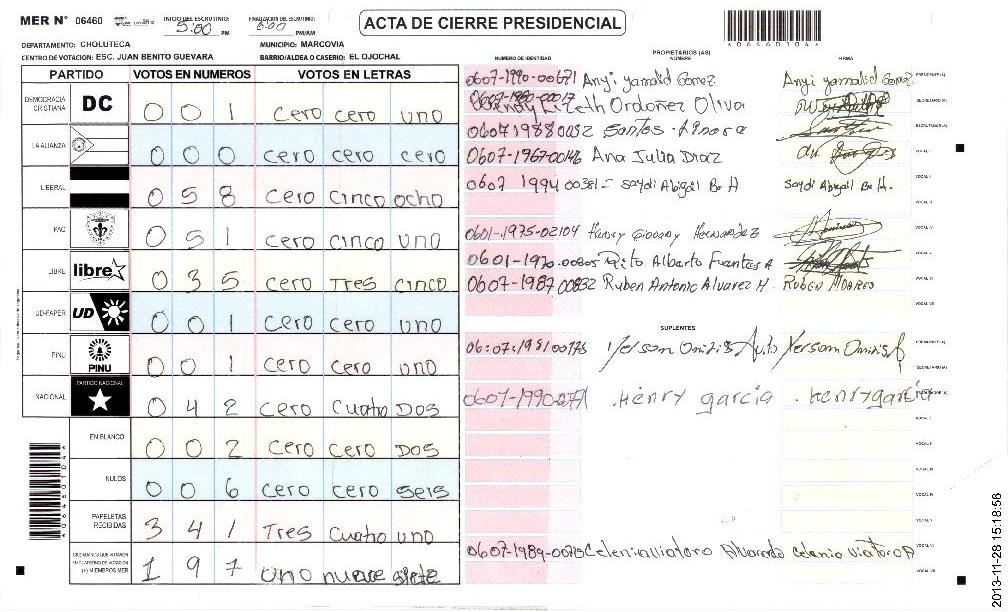 MER N° 06460 INICIO DEL ESCRUTINIO: 5:00 PM FINALIZACION DEL ESCRUTINIO: 6:00 PM/AM
ACTA DE CIERRE PRESIDENCIAL
4064601044
DEPARTAMENTO: CHOLUTECA MUNICIPIO: MARCOVIA
CENTRO DE VOTACION: ESC. JUAN BENITO GUEVARA BARRIO/ALDEA O CASERIO: EL OJOCHAL
PARTIDO VOTOS EN NUMEROS VOTOS EN LETRAS
DEMOCRACIA CRISTIANA DC 0 0 1 cero cero uno
LA ALIANZA 0 0 0 cero cero cero
LIBERAL 0 5 8 cero cinco ocho
PAC 0 5 1 cero cinco uno
LIBRE libre 0 3 5 cero Tres cinco
UD-FAPER UD 0 0 1 cero cero uno
PINU PINU 0 0 1 cero cero uno
NACIONAL PARTIDO NACIONAL 0 4 2 cero cuatro Dos
EN BLANCO 0 0 2 cero cero Dos
NULOS 0 0 6 cero cero seis
PAPELETAS RECIBIDAS 3 4 1 Tres cuatro uno
CIUDADANOS QUE VOTARON EN CUADERNO DE VOTACION (+) MIEMBROS MER 1 9 7 uno nueve siete
PROPIETARIOS (AS)
NUMERO DE IDENTIDAD NOMBRE FIRMA
0607-1990-00671 Anyi yamalid Gomez Anyi yamalid Gomez PRESIDENTE (A)
Ordoñez Oliva SECRETARIO (A)
0607 1988 0032 Santos ESCRUTADOR (A)
0607-1967-00146 Ana Julia Diaz VOCAL I
0607 1994 00381- Saydi Abigail Saydi Abigail VOCAL II
VOCAL III
0601-1975-02104 Henry Giovany Hernandez VOCAL IV
0601-1970-00805 Alberto Fuentes A VOCAL V
0607-1987 00832 Ruben Antonio Alvarez H. VOCAL VI
VOCAL VII
SUPLENTES
06:07:1981 00175 PRESIDENTE (A)
SECRETARIO (A)
Henry garcia Henry garcia
VOCAL I
VOCAL II
VOCAL III
VOCAL IV
VOCAL V
0607-1989- Alvarado VOCAL VI
VOCAL VII
2013-11-28 15:18:56